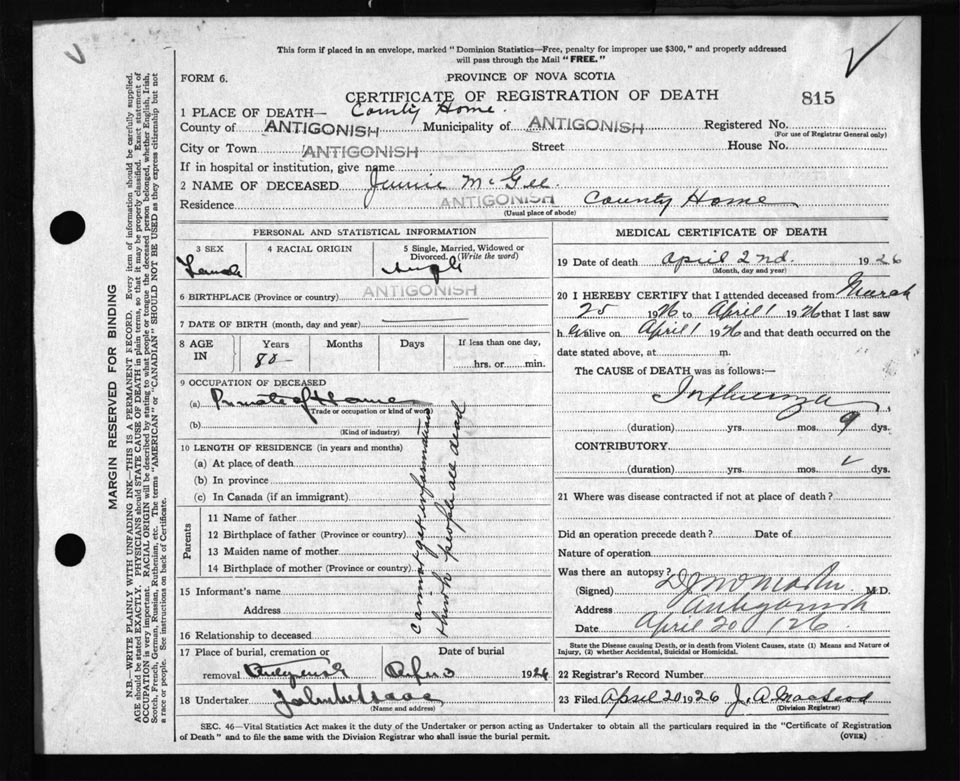 This form if placed in an envelope, marked "Dominion Statistics—Free, penalty for improper use $300," and properly addressed
will pass through the Mail "FREE."
FORM 6.
PROVINCE OF NOVA SCOTIA
CERTIFICATE OF REGISTRATION OF DEATH
815
1 PLACE OF DEATH— County Home.
County of ANTIGONISH Municipality of ANTIGONISH Registered No.
(For use of Registrar General only)
City or Town ANTIGONISH Street House No.
If in hospital or institution, give name
2 NAME OF DECEASED Jennie McGee.
Residence ANTIGONISH County Home
(Usual place of abode)
PERSONAL AND STATISTICAL INFORMATION
3 SEX 4 RACIAL ORIGIN 5 Single, Married, Widowed or
Divorced. (Write the word)
Female Single
6 BIRTHPLACE (Province or country) ANTIGONISH
7 DATE OF BIRTH (month, day and year)
8 AGE IN Years Months Days If less than one day,
80 hrs. or min.
9 OCCUPATION OF DECEASED
(a) Home
(Trade or occupation or kind of work)
(b)
(Kind of industry)
10 LENGTH OF RESIDENCE (in years and months)
(a) At place of death
(b) In province
(c) In Canada (if an immigrant)
Parents
11 Name of father
12 Birthplace of father (Province or country)
13 Maiden name of mother
14 Birthplace of mother (Province or country)
15 Informant's name
Address
16 Relationship to deceased
Cannot get information
think people all dead
17 Place of burial, cremation or Date of burial
removal 3 1926
18 Undertaker
(Name and address)
MEDICAL CERTIFICATE OF DEATH
19 Date of death April 2nd. 1926
(Month, day and year)
20 I HEREBY CERTIFY that I attended deceased from March
25 1926 to April 1 1926 that I last saw
her alive on April 1 1926 and that death occurred on the
date stated above, at m.
The CAUSE of DEATH was as follows:—
Influenza
(duration) yrs. mos. 9 dys.
CONTRIBUTORY
(duration) yrs. mos. dys.
21 Where was disease contracted if not at place of death?
Did an operation precede death? Date of
Nature of operation
Was there an autopsy?
(Signed) M.D.
Address Antigonish
Date April 20 / 26
State the Disease causing Death, or in death from Violent Causes, state (1) Means and Nature of
Injury, (2) whether Accidental, Suicidal or Homicidal.
22 Registrar's Record Number
23 Filed April 20 1926 J. A. MacLeod
(Division Registrar)
SEC. 46—Vital Statistics Act makes it the duty of the Undertaker or person acting as Undertaker to obtain all the particulars required in the "Certificate of Registration
of Death" and to file the same with the Division Registrar who shall issue the burial permit. (OVER)
MARGIN RESERVED FOR BINDING
N.B.—WRITE PLAINLY WITH UNFADING INK—THIS IS A PERMANENT RECORD. Every item of information should be carefully supplied.
AGE should be stated EXACTLY. PHYSICIANS should STATE CAUSE OF DEATH in plain terms, so that it may be properly classified. Exact statement of
OCCUPATION is very important. RACIAL ORIGIN will be described by stating to what people or tongue the deceased person belonged, whether English, Irish,
Scotch, French, German, Russian, Ruthenian, etc. The terms "AMERICAN" or "CANADIAN" SHOULD NOT BE USED as they express citizenship but not
a race or people. See instructions on back of Certificate.